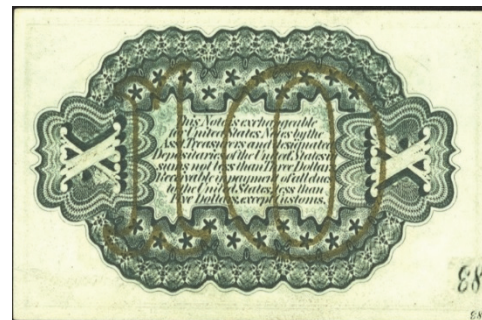 This Note is exchangeable
for United States Notes by the
Asst. Treasurers and designated
Depositaries of the United States in
sums not less than Three Dollars.
Receivable in payment of all dues
to the United States, less than
Five Dollars, except Customs.
X X
10
83